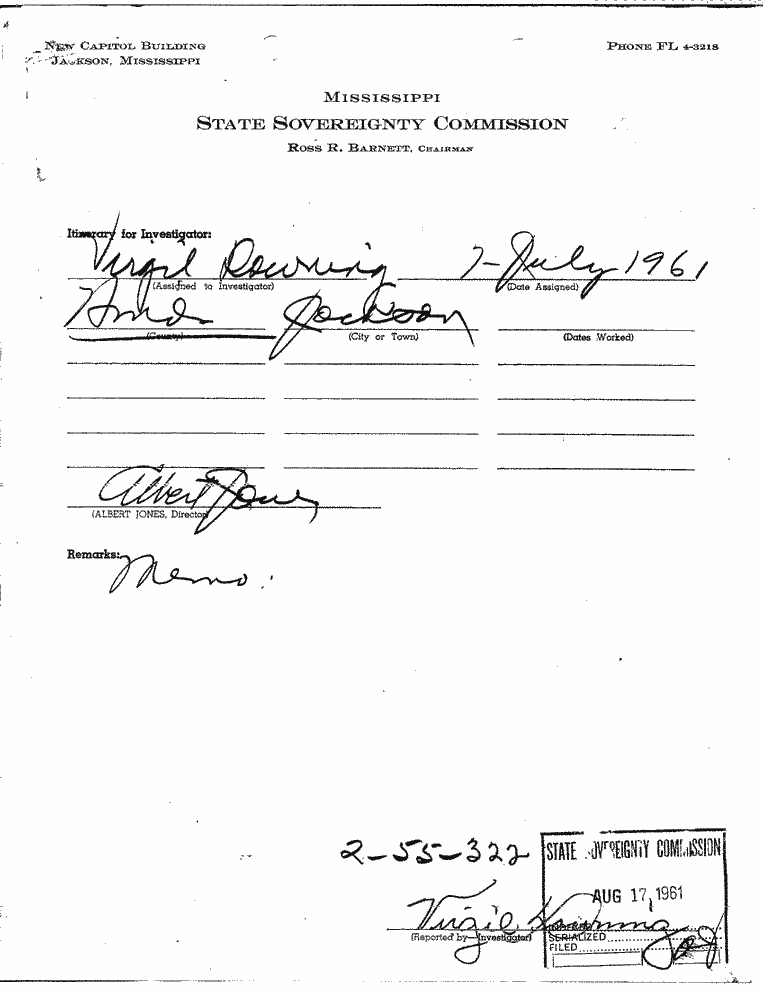 NEW CAPITOL BUILDING
JACKSON, MISSISSIPPI
PHONE FL 4-3218
MISSISSIPPI
STATE SOVEREIGNTY COMMISSION
ROSS R. BARNETT, CHAIRMAN
Itinerary for Investigator:
Virgil Downing 7-July 1961
(Assigned to Investigator) (Date Assigned)
Hinds Jackson
(County) (City or Town) (Dates Worked)
Albert Jones
(ALBERT JONES, Director)
Remarks:
Memo.
2-55-322
STATE SOVEREIGNTY COMMISSION
AUG 17, 1961
Virgil Downing
(Reported by—Investigator)
SERIALIZED
FILED